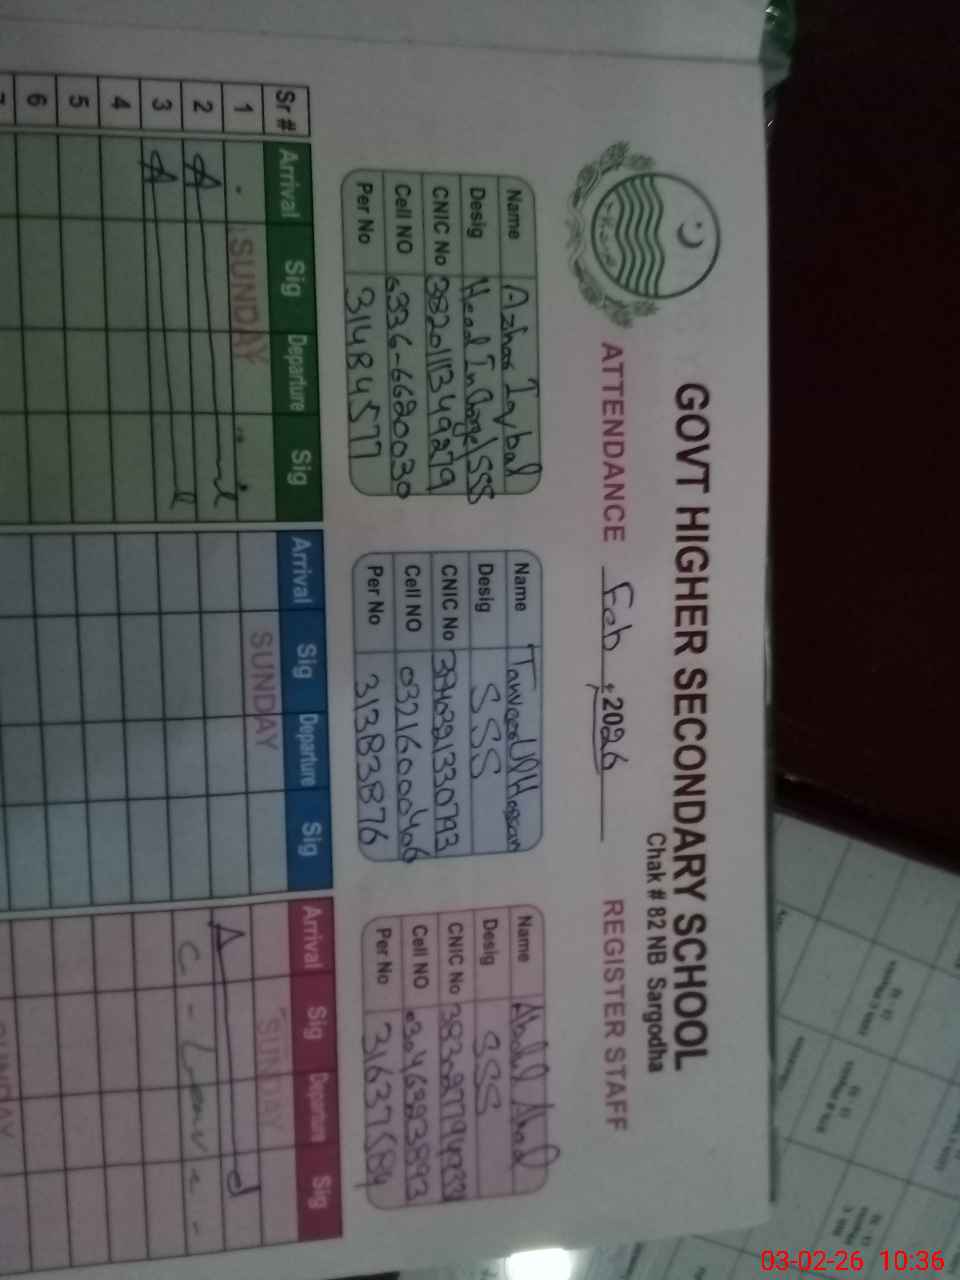 GOVT HIGHER SECONDARY SCHOOL
Chak # 82 NB Sargodha
ATTENDANCE Feb, 2026 REGISTER STAFF
Name Azhar Iqbal
Desig Head InCharge/SSS
CNIC No
Cell NO 0336-6620030
Per No 31484577
Name Tanveer Ul Hassan
Desig SSS
CNIC No
Cell NO 03216000406
Per No 31383876
Name Abdul Ahad
Desig SSS
CNIC No
Cell NO
Per No
Sr # Arrival Sig Departure Sig Arrival Sig Departure Sig Arrival Sig Departure Sig
1 SUNDAY SUNDAY SUNDAY
2 A A
3 A C - Leave -
4
5
6
7 SUNDAY
03-02-26 10:36